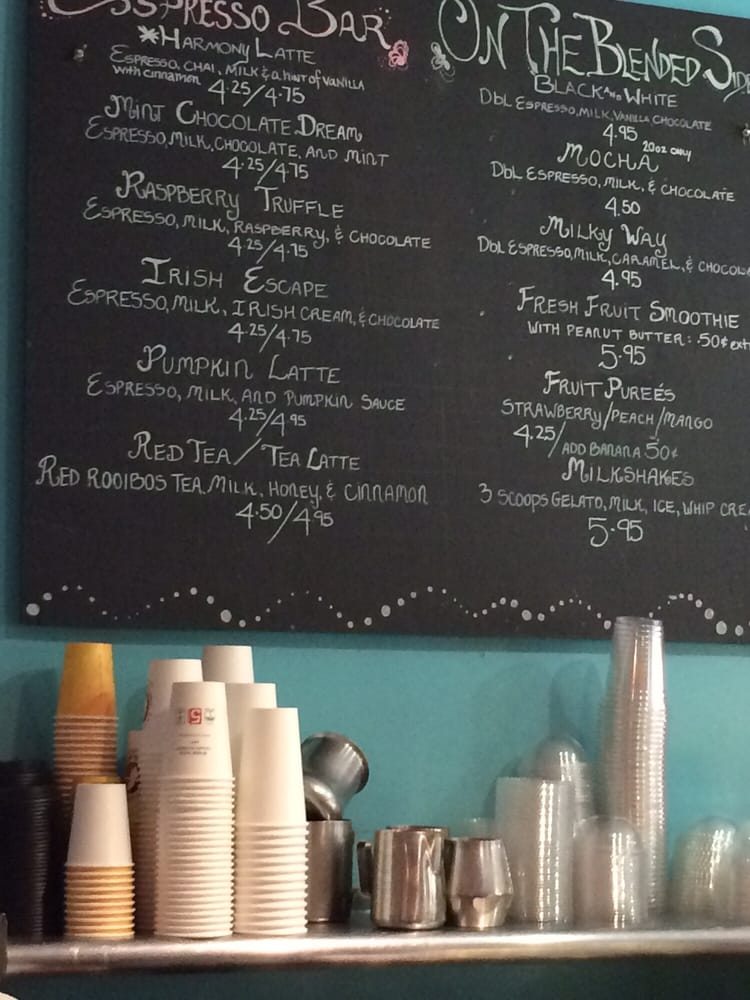 Espresso Bar
*Harmony Latte
Espresso, Chai, Milk & a hint of Vanilla
with cinnamon 4.25/4.75
Mint Chocolate Dream
Espresso, Milk, Chocolate, and Mint
4.25/4.75
Raspberry Truffle
Espresso, Milk, Raspberry, & Chocolate
4.25/4.75
Irish Escape
Espresso, Milk, Irish Cream, & Chocolate
4.25/4.75
Pumpkin Latte
Espresso, Milk, and Pumpkin Sauce
4.25/4.95
Red Tea/Tea Latte
Red Rooibos Tea, Milk, Honey, & Cinnamon
4.50/4.95
On The Blended Side
Black and White
Dbl Espresso, Milk, Vanilla Chocolate
4.95 20oz only
Mocha
Dbl Espresso, Milk, & Chocolate
4.50
Milky Way
Dbl Espresso, Milk, Caramel, & Chocol
4.95
Fresh Fruit Smoothie
with Peanut Butter: .50¢ ext
5.95
Fruit Pureés
Strawberry/Peach/Mango
4.25/ Add Banana 50¢
Milkshakes
3 Scoops Gelato, Milk, Ice, Whip Cre
5.95